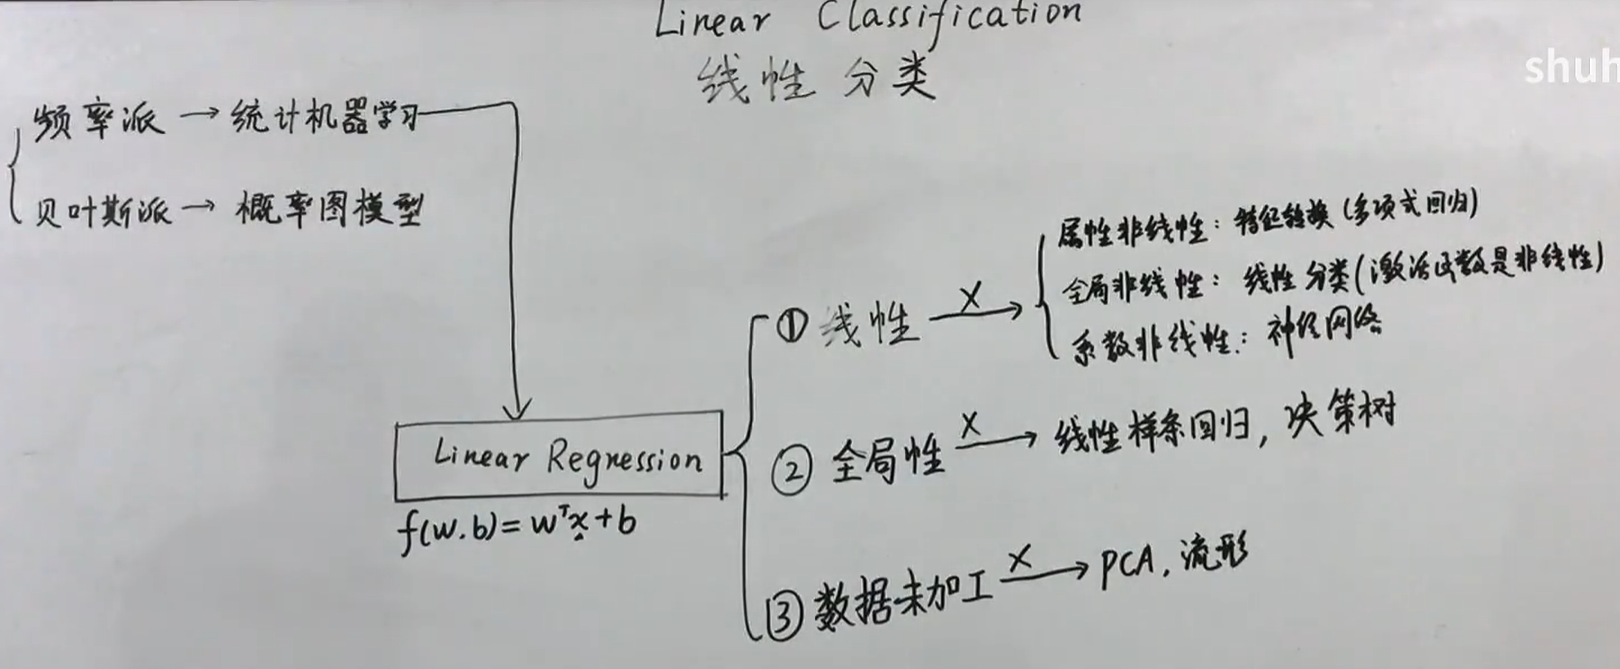 Linear Classification
线性分类
shuh
频率派 → 统计机器学习
贝叶斯派 → 概率图模型
Linear Regression
f(w.b)=wᵀx+b
① 线性 X→
属性非线性：特征转换（多项式回归）
全局非线性：线性分类（激活函数是非线性）
系数非线性：神经网络
② 全局性 X→ 线性样条回归，决策树
③ 数据未加工 X→ PCA，流形